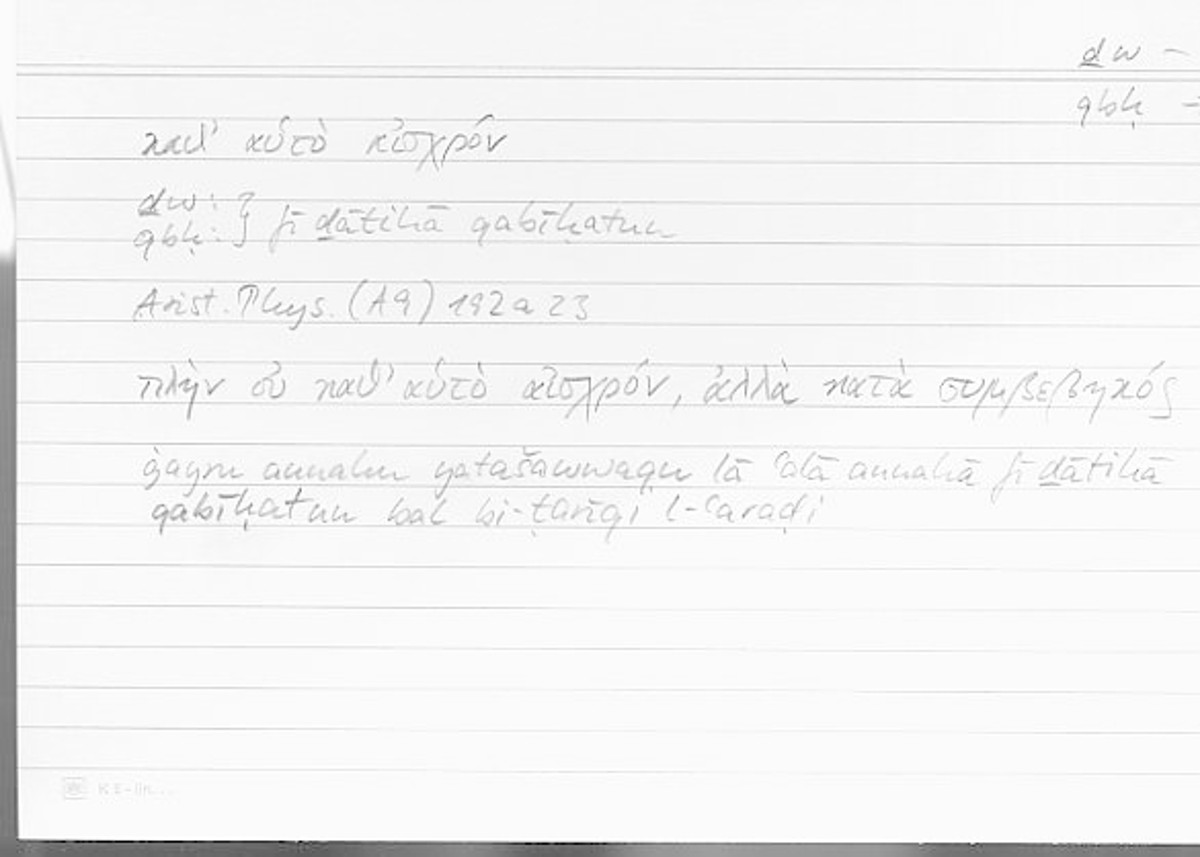 ḏw –
qbḥ –
καθ' αὑτὸ αἰσχρόν
ḏw:
qbḥ: } fī ḏātihā qabīḥatun
Arist. Phys. (A9) 192a23
πλὴν οὐ καθ' αὑτὸ αἰσχρόν, ἀλλὰ κατὰ συμβεβηκός
ġayru annahu yatašawwaqu lā ʿalā annahā fī ḏātihā
qabīḥatun bal bi-ṭarīqi l-ʿaraḍi